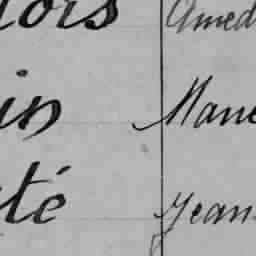 ois Amed
in Marie
té Jean